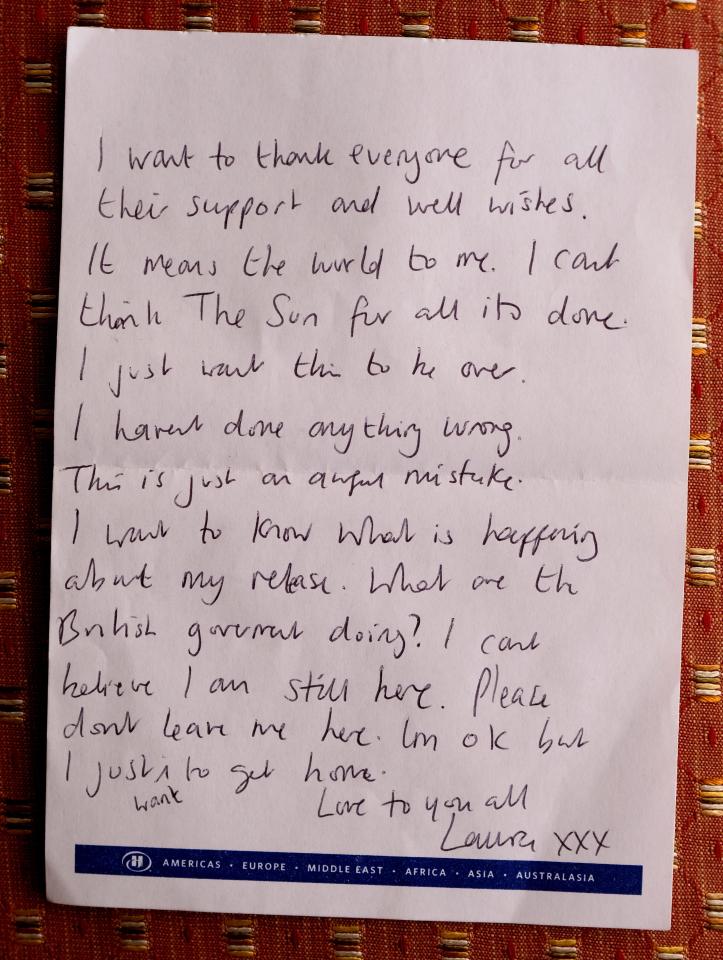 I want to thank everyone for all
their support and well wishes.
It means the world to me. I cant
thank The Sun for all its done.
I just want this to be over.
I havent done anything wrong.
This is just an awful mistake.
I want to know what is happening
about my release. What are the
British goverment doing? I cant
believe I am still here. Please
dont leave me here. Im ok but
I just want to get home.
Love to you all
Laura xxx
H AMERICAS • EUROPE • MIDDLE EAST • AFRICA • ASIA • AUSTRALASIA